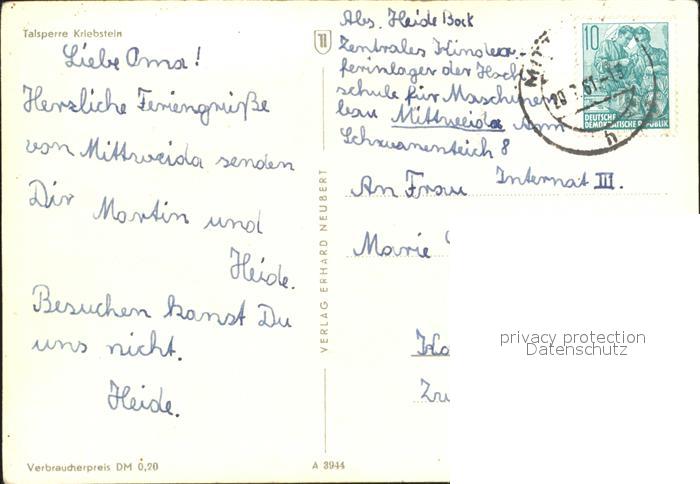 Talsperre Kriebstein
Liebe Oma!
Herzliche Feriengrüße
von Mittweida senden
Dir Martin und
Heide.
Besuchen kanst Du
uns nicht.
Heide.
Verbraucherpreis DM 0,20
VERLAG ERHARD NEUBERT
A 3944
Abs. Heide Bock
Zentrales Kinder
ferienlager der Hoch
schule für Maschinen
bau Mittweida Am
Schwanenteich 8
Internat III.
An Frau
Marie
10
DEUTSCHE
DEMOKRATISCHE REPUBLIK
MITT
h
privacy protection
Datenschutz